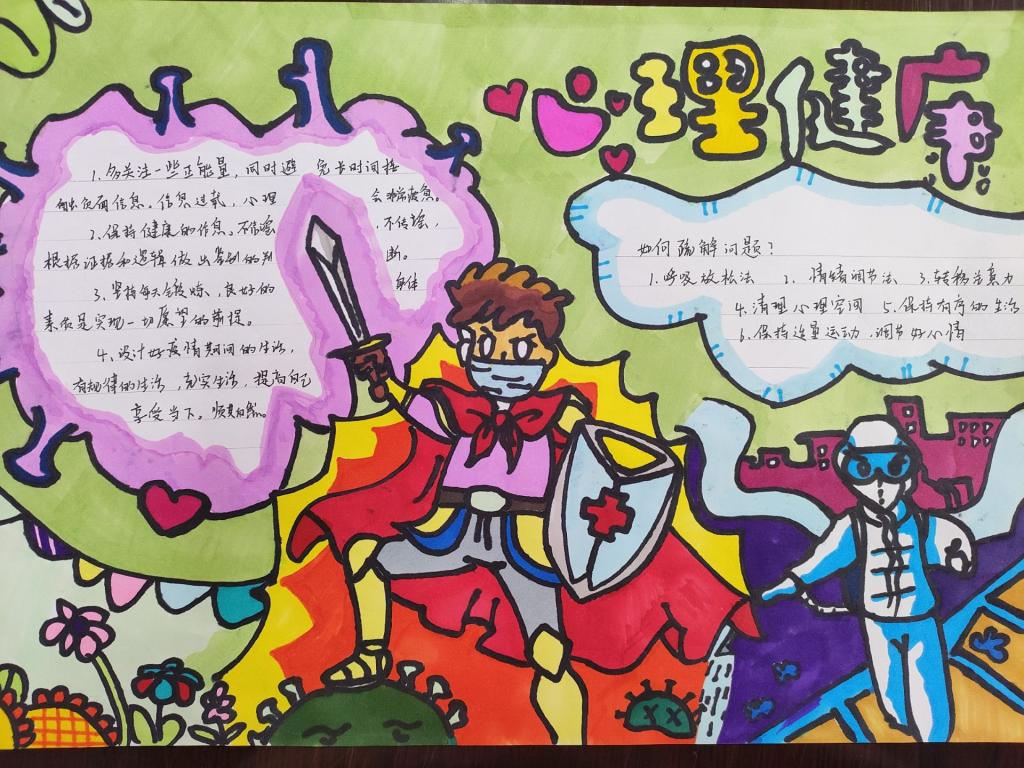 心理健康
1.多关注一些正能量，同时避免长时间接
触负面信息。信息过载，心理会非常疲惫。
2.保持健康的作息。不信谣，不传谣，
根据证据和逻辑做出签别的判断。
3.坚持每天去锻炼，良好的身体
素质是实现一切愿望的前提。
4.设计好疫情期间的生活，
有规律的生活，充实生活，提高自己
享受当下。顺其自然。
如何疏解问题？
1.呼吸放松法 2.情绪调节法 3.转移注意力
4.清理心理空间 5.保持有序的生活
6.保持适量运动，调节好心情